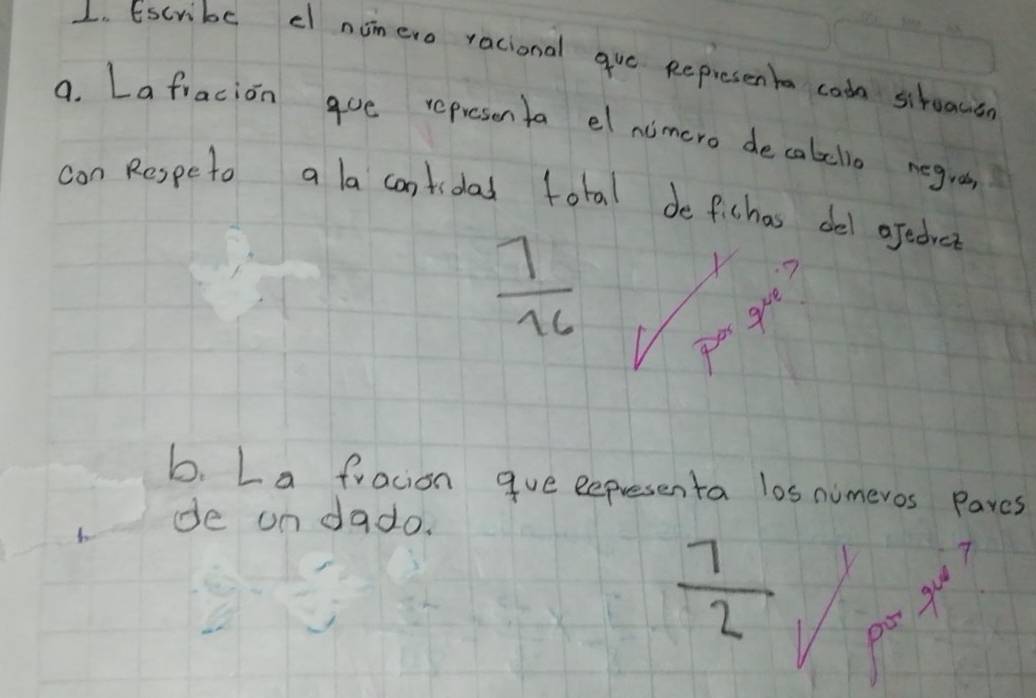 I. Escribe el número racional que Representa cada situación
a. La fración que representa el número de caballo negros,
con Respeto a la cantidad total de fichas del ajedrez
1
16
por qué?
b. La fracion que Representa los números Pares
de un dado.
1
2
por qué?